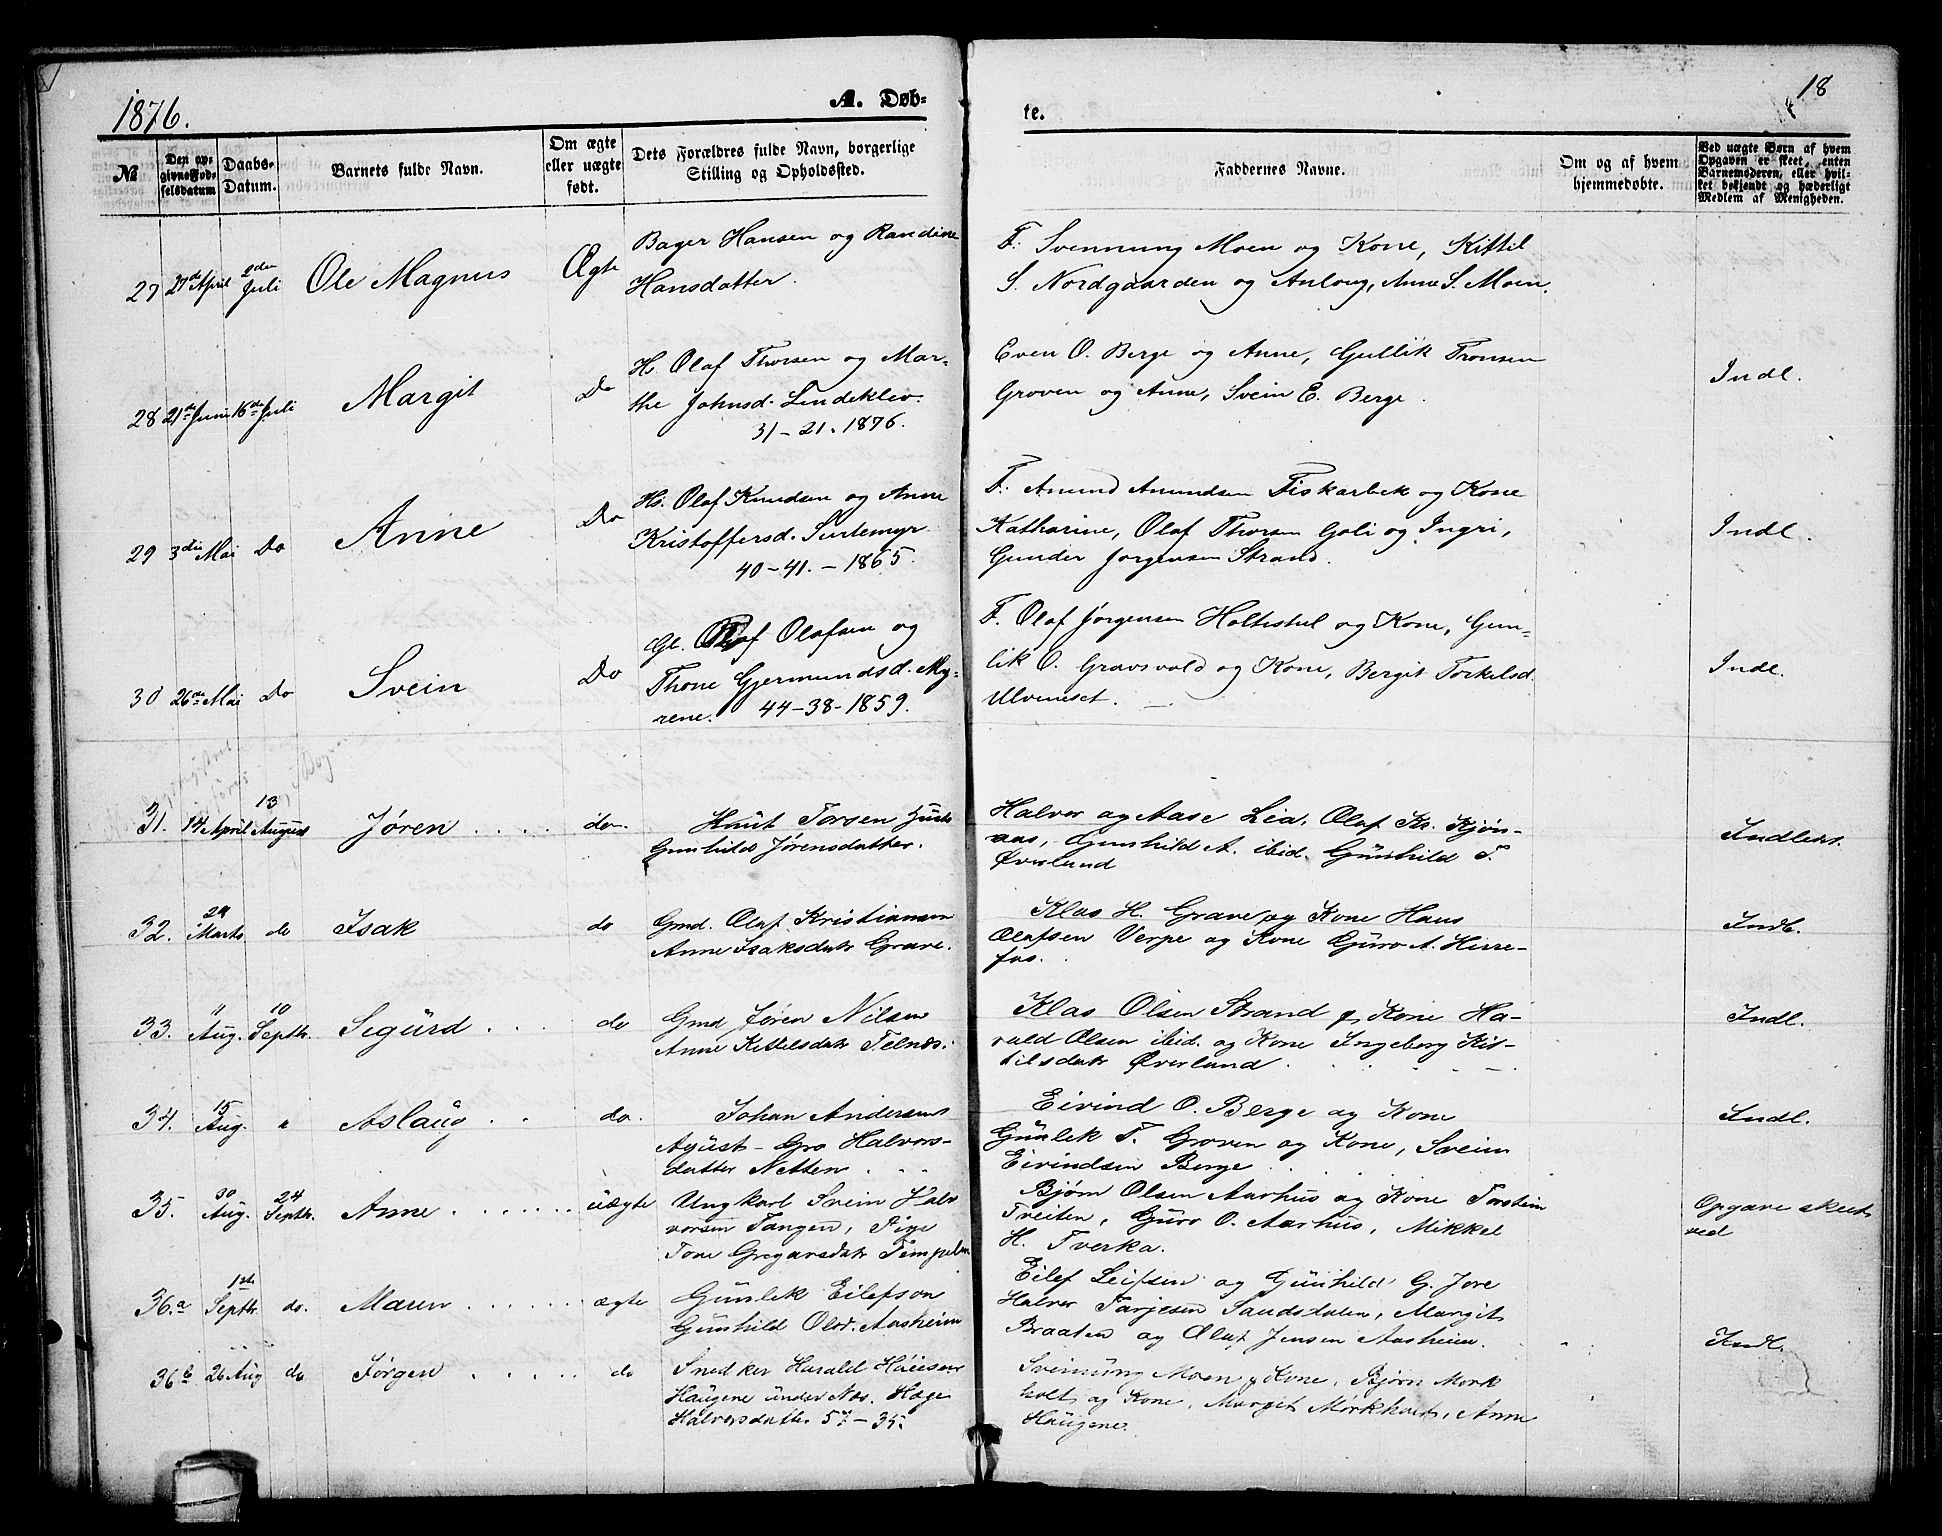 1876.
A. Døb-
te.
18
№
Den opgivne Fødselsdatum
Daabs-Datum.
Barnets fulde Navn.
Om ægte eller uægte født.
Dets Forældres fulde Navn, borgerlige Stilling og Opholdssted.
Faddernes Navne.
Om og af hvem hjemmedøbte.
Ved uægte Børn af hvem Opgaven er skeet, enten Barnemoderen, eller hvilket bekjendt og hæderligt Medlem af Menigheden.
27 27de April 2den Juli Ole Magnus Ægte
Bager Hansen og Randine
Hansdatter.
F: Svennung Moen og Kone, Kittil
S. Nordgaarden og Anlaug, Anne S. Moen.
28 21de Juni 16de Juli Margit Do
H. Olaf Thorsen og Mar-
the Johnsd. Lindeklev.
31 - 21. 1876.
Even O. Berge og Anne, Gullik Tronsen
Groven og Anne, Svein E. Berge.
Indl.
29 3die Mai Do Anne Do
Hs. Olaf Knudsen og Anne
Kristoffersd. Surtemyr
40 - 41. - 1865.
F: Amund Amundsen Fiskarbek og Kone
Katharine, Olaf Thorsen Goli og Ingri,
Gunder Jørgensen Strand.
Indl.
30 26de Mai Do Svein Do
Gl. Olaf Olafsen og
Thone Gjermundsd. My-
rene. 44-38-1859.
F. Olaf Jørgensen Holtestul og Kone, Gun-
lik O. Gravsvold og Kone, Bergit Torkelsd.
Ulveneset.
Indl.
31. 14 April 13 August Jøren do.
Knut Torsen
Gunhild Jørensdatter.
Halvor og Aase Lia. Olaf Kr. Kjøn-
aas, Gunhild A. ibid. Gunhild T.
Øverland
Indlem.
32. 29 Marts do Isak do
Gmd. Olaf Kristiansen
Anne Isaksdatr Grave.
Klas H. Grave og Kone Hans
Olafsen Verpe og Kone Guro A. Hirre-
fos.
Indl.
33. 11 Aug. 10 Septbr. Sigurd do
Gmd Jøren Nilsen
Anne Kittelsdatr Telnes.
Klas Olsen Strand & Kone Ha-
rald Olsen ibid. og Kone Ingeborg Kit-
tilsdatr Øverland.
Indl.
34. 15 Aug. " Aslaug do.
Johan Andersen
August - Gro Halvors-
datter Netten
Eivind O. Berge og Kone
Gunlek T. Groven og Kone, Svein
Eivindsen Berge
Indl.
35. 30 Aug. 24 Septbr. Anne uægte
Ungkarl Svein Hal-
vorsen Tangen, Pige
Tone Gregarsdatr Tempelen
Bjørn Olsen Aarhus og Kone Torstein
Treiten, Guro O. Aarhus, Mikkel
H. Tverka.
Opgave skeet
ved
36.a 1ste Septbr. do. Maren ægte
Gunlek Eilefson
Gunhild Olsd. Aasheim
Eilef Leifsen og Gunhild G. Jore
Halvor Tarjesen Sandsdalen, Margit
Braaten og Olaf Jensen Aasheim.
Indl.
36b 26 Aug do Jørgen do
Snedker Harald
Haugene under Næs. Hæge
Halvorsdatter 57-35.
Sveinung Moen & Kone, Bjørn Mørk
holt og Kone, Margit Mørkholt, Anne
Haugene.